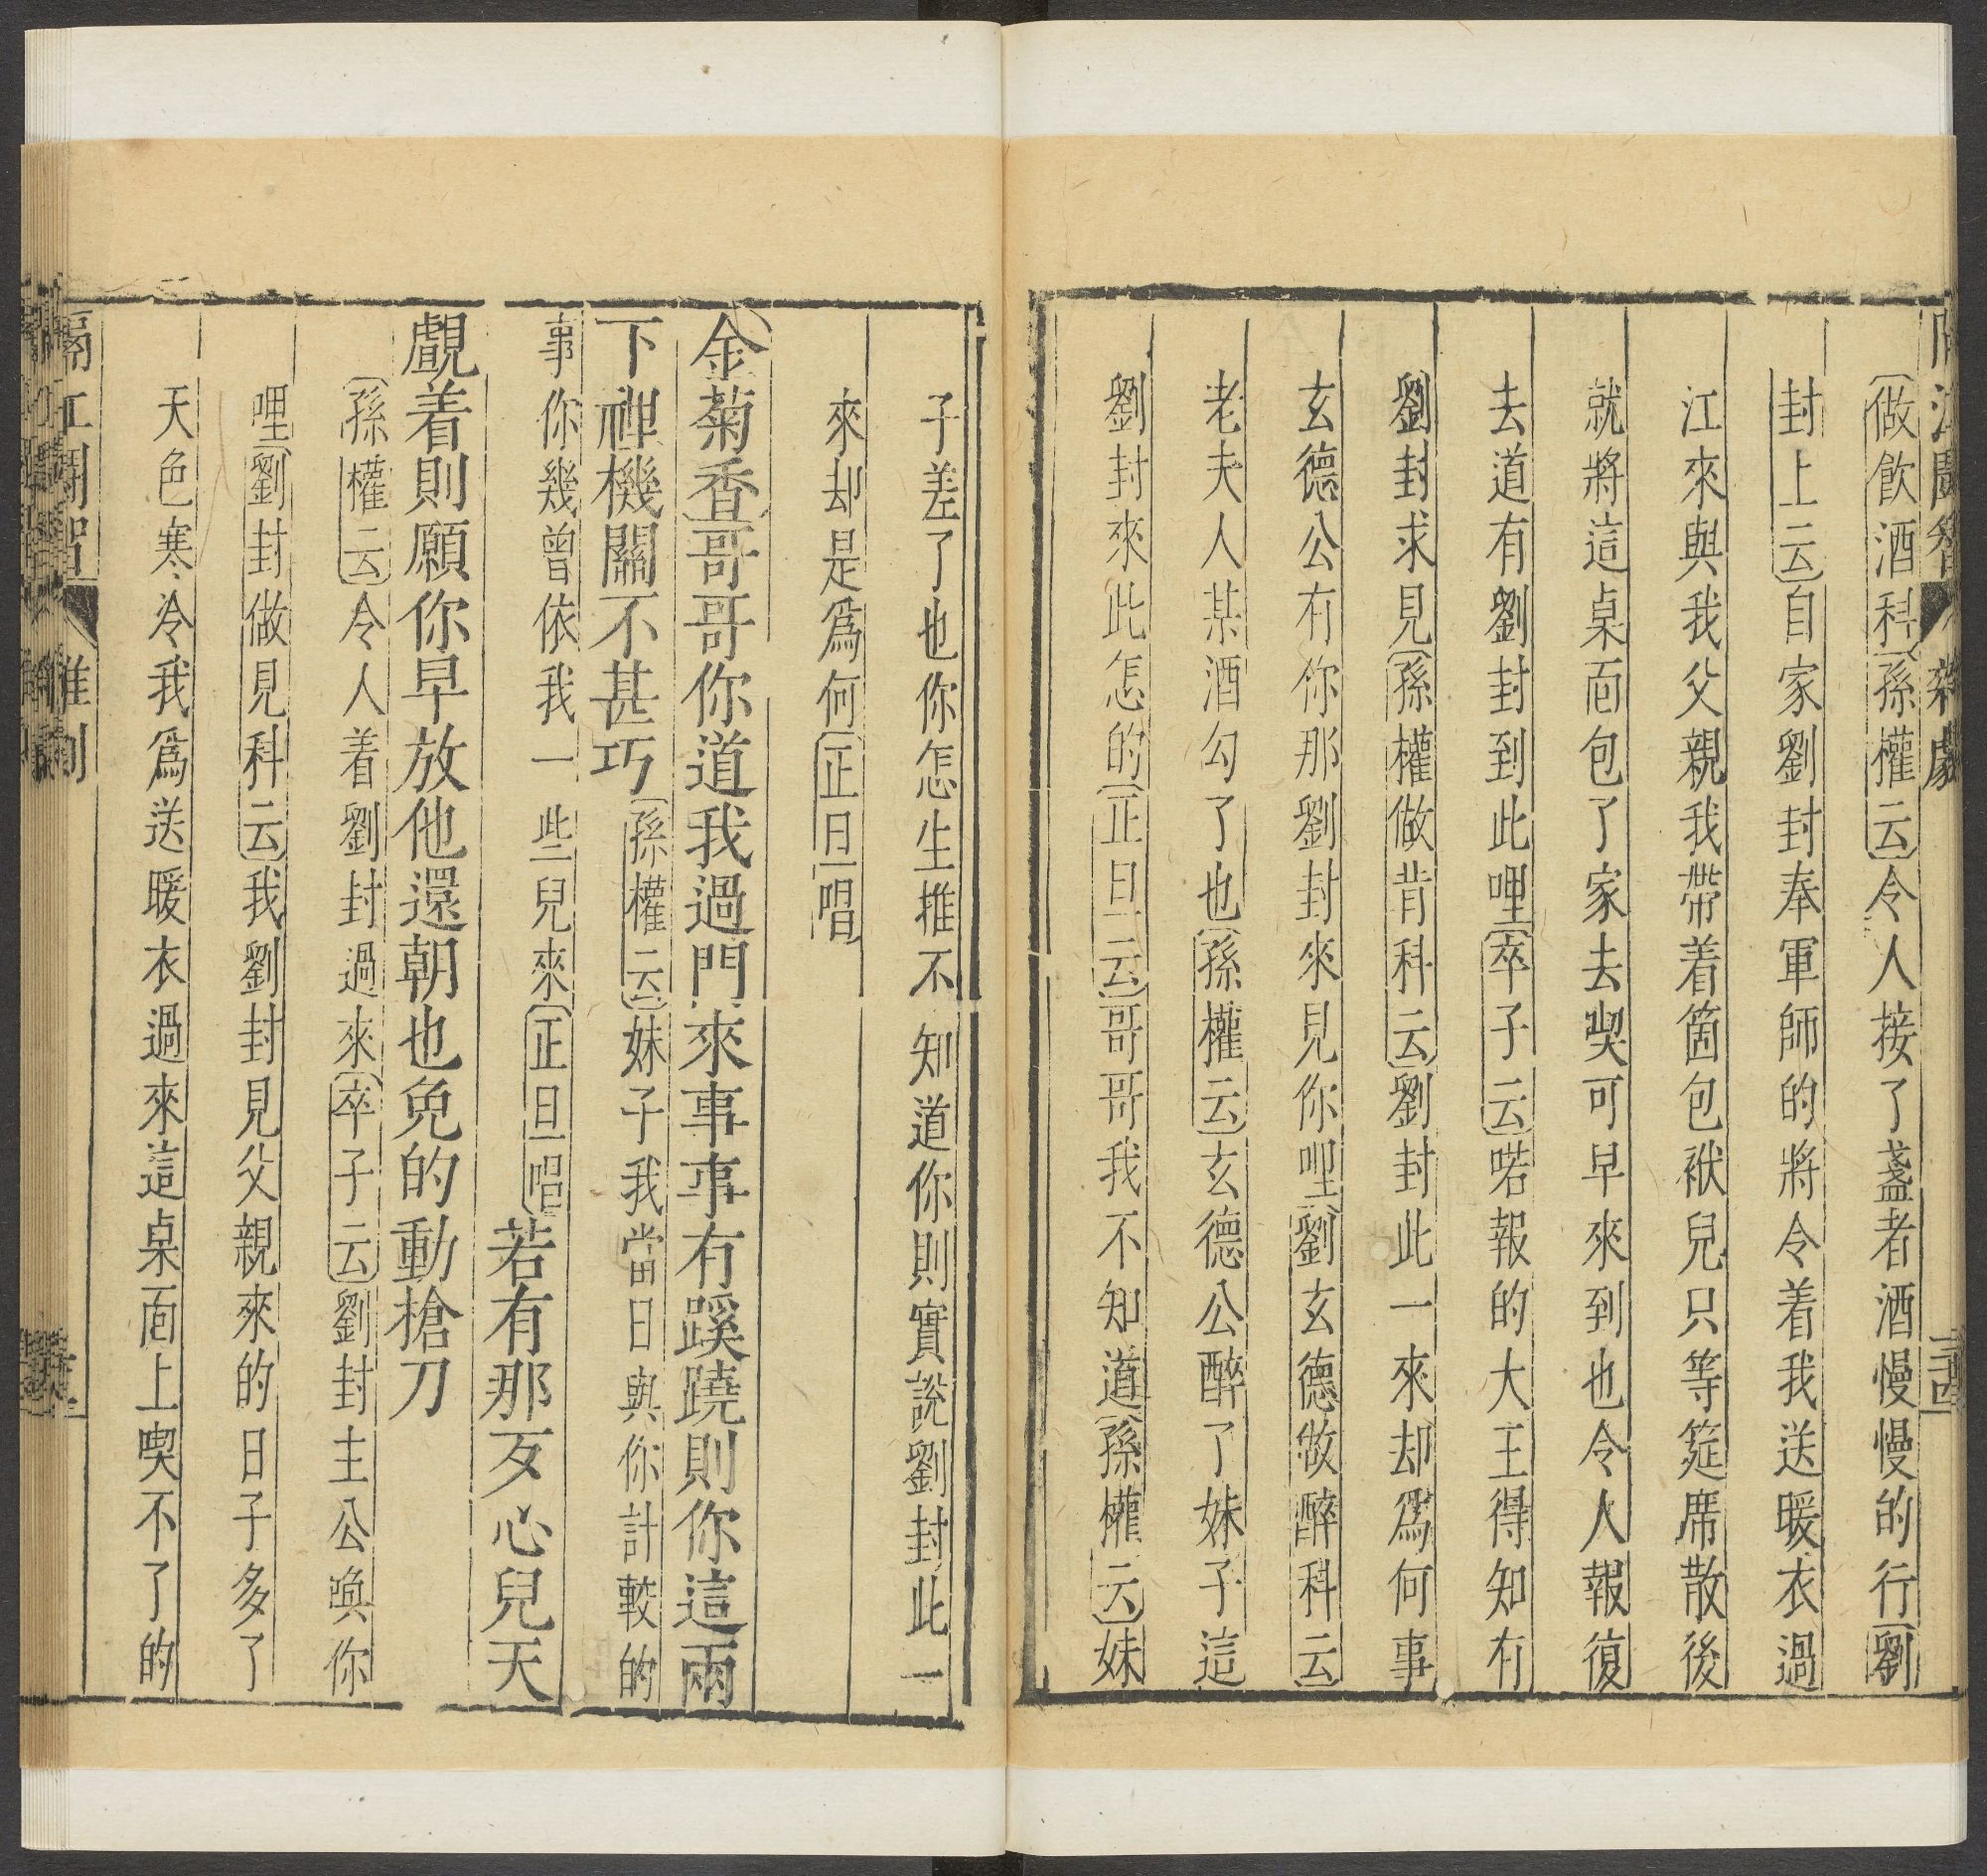 做飲酒科孫權云令人接了盞者酒慢慢的行劉
封上云自家劉封奉軍師的將令着我送暖衣過
江來與我父親我帶着箇包袱兒只等筵席散後
就將這桌面包了家去喫可早來到也令人報復
去道有劉封到此哩卒子云喏報的大王得知有
劉封求見孫權做背科云劉封此一來却爲何事
玄德公有你那劉封來見你哩劉玄德做醉科云
老夫人某酒勾了也孫權云玄德公醉了妹子這
劉封來此怎的正旦云哥哥我不知道孫權云妹
子差了也你怎生推不知道你則實說劉封此一
來却是爲何正旦唱
金菊香哥哥你道我過門來事事有蹊蹺則你這兩
下裡機關不甚巧孫權云妹子我當日與你計較的
事你幾曾依我一些兒來正旦唱若有那歹心兒天
覷着則願你早放他還朝也免的動槍刀
孫權云令人着劉封過來卒子云劉封主公喚你
哩劉封做見科云我劉封見父親來的日子多了
天色寒冷我爲送暖衣過來這桌面上喫不了的